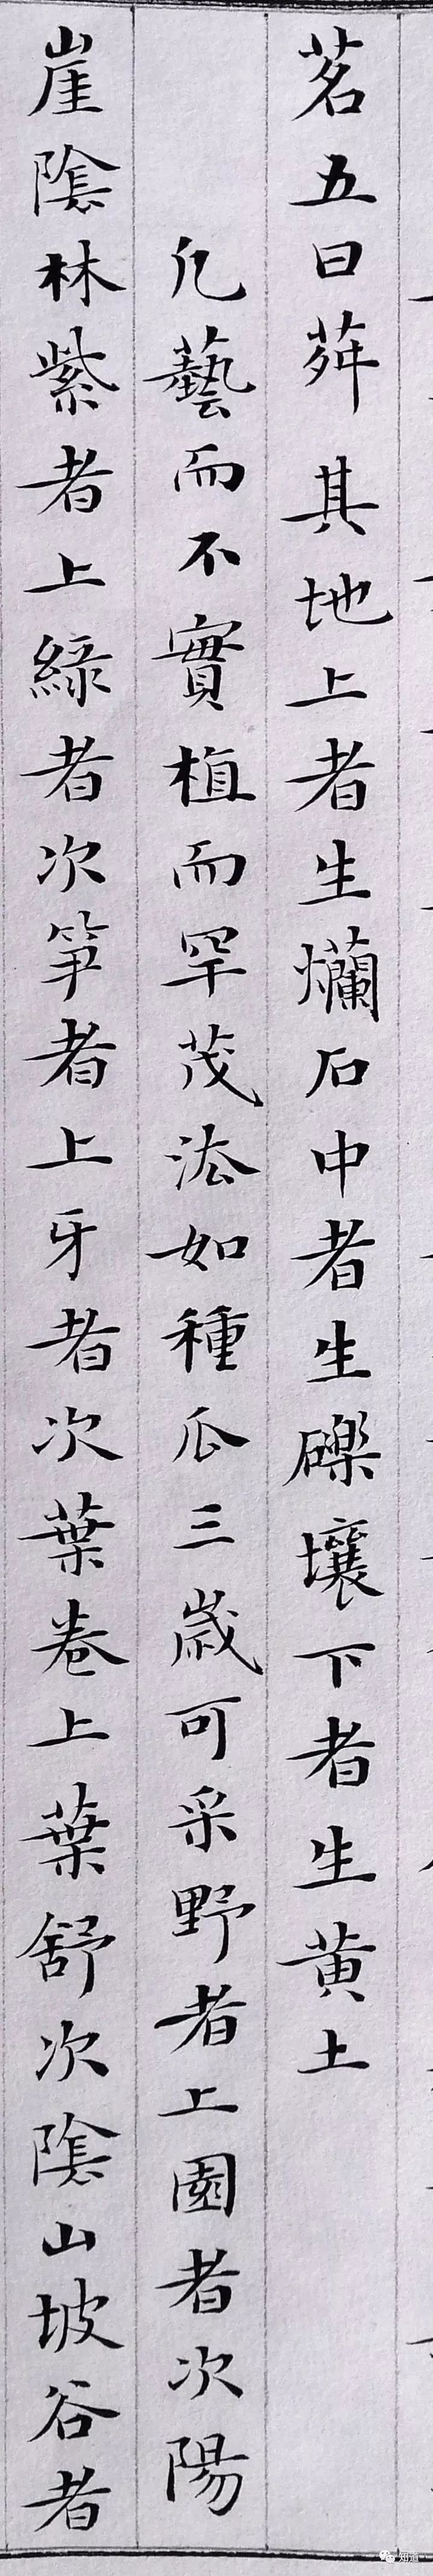 茗五曰荈其地上者生爛石中者生礫壤下者生黄土
凡藝而不實植而罕茂法如種瓜三歲可采野者上園者次陽
崖陰林紫者上緑者次笋者上牙者次葉卷上葉舒次陰山坡谷者
知道